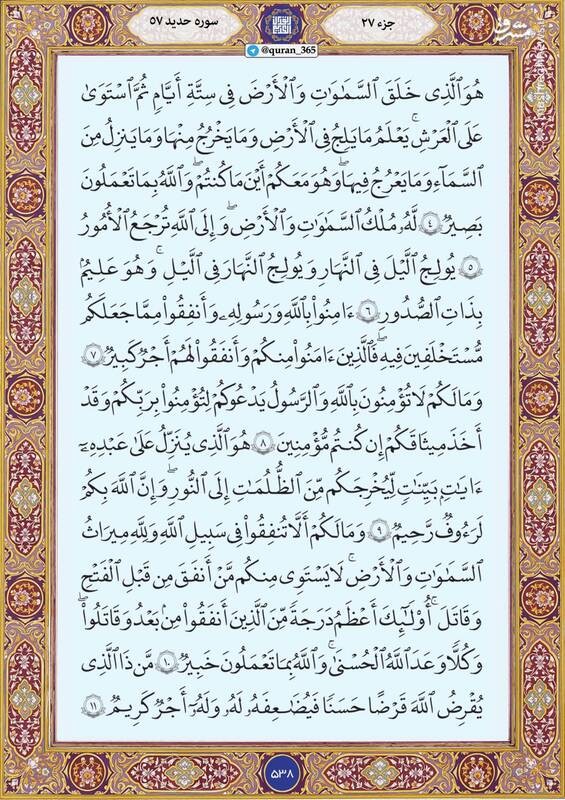 جزء ۲۷
سوره حدید ۵۷
@quran_365
هُوَ ٱلَّذِى خَلَقَ ٱلسَّمَـٰوَٰتِ وَٱلْأَرْضَ فِى سِتَّةِ أَيَّامٍ ثُمَّ ٱسْتَوَىٰ
عَلَى ٱلْعَرْشِ ۚ يَعْلَمُ مَا يَلِجُ فِى ٱلْأَرْضِ وَمَا يَخْرُجُ مِنْهَا وَمَا يَنزِلُ مِنَ
ٱلسَّمَآءِ وَمَا يَعْرُجُ فِيهَا ۖ وَهُوَ مَعَكُمْ أَيْنَ مَا كُنتُمْ ۚ وَٱللَّهُ بِمَا تَعْمَلُونَ
بَصِيرٌ ۝٤ لَّهُۥ مُلْكُ ٱلسَّمَـٰوَٰتِ وَٱلْأَرْضِ ۚ وَإِلَى ٱللَّهِ تُرْجَعُ ٱلْأُمُورُ
۝٥ يُولِجُ ٱلَّيْلَ فِى ٱلنَّهَارِ وَيُولِجُ ٱلنَّهَارَ فِى ٱلَّيْلِ ۚ وَهُوَ عَلِيمٌۢ
بِذَاتِ ٱلصُّدُورِ ۝٦ ءَامِنُوا۟ بِٱللَّهِ وَرَسُولِهِۦ وَأَنفِقُوا۟ مِمَّا جَعَلَكُم
مُّسْتَخْلَفِينَ فِيهِ ۖ فَٱلَّذِينَ ءَامَنُوا۟ مِنكُمْ وَأَنفَقُوا۟ لَهُمْ أَجْرٌ كَبِيرٌ ۝٧
وَمَا لَكُمْ لَا تُؤْمِنُونَ بِٱللَّهِ وَٱلرَّسُولُ يَدْعُوكُمْ لِتُؤْمِنُوا۟ بِرَبِّكُمْ وَقَدْ
أَخَذَ مِيثَاقَكُمْ إِن كُنتُم مُّؤْمِنِينَ ۝٨ هُوَ ٱلَّذِى يُنَزِّلُ عَلَىٰ عَبْدِهِۦٓ
ءَايَـٰتٍۭ بَيِّنَـٰتٍ لِّيُخْرِجَكُم مِّنَ ٱلظُّلُمَـٰتِ إِلَى ٱلنُّورِ ۚ وَإِنَّ ٱللَّهَ بِكُمْ
لَرَءُوفٌ رَّحِيمٌ ۝٩ وَمَا لَكُمْ أَلَّا تُنفِقُوا۟ فِى سَبِيلِ ٱللَّهِ وَلِلَّهِ مِيرَٰثُ
ٱلسَّمَـٰوَٰتِ وَٱلْأَرْضِ ۚ لَا يَسْتَوِى مِنكُم مَّنْ أَنفَقَ مِن قَبْلِ ٱلْفَتْحِ
وَقَـٰتَلَ ۚ أُو۟لَـٰٓئِكَ أَعْظَمُ دَرَجَةً مِّنَ ٱلَّذِينَ أَنفَقُوا۟ مِنۢ بَعْدُ وَقَـٰتَلُوا۟ ۚ
وَكُلًّا وَعَدَ ٱللَّهُ ٱلْحُسْنَىٰ ۚ وَٱللَّهُ بِمَا تَعْمَلُونَ خَبِيرٌ ۝١٠ مَّن ذَا ٱلَّذِى
يُقْرِضُ ٱللَّهَ قَرْضًا حَسَنًا فَيُضَـٰعِفَهُۥ لَهُۥ وَلَهُۥٓ أَجْرٌ كَرِيمٌ ۝١١
۵۳۸